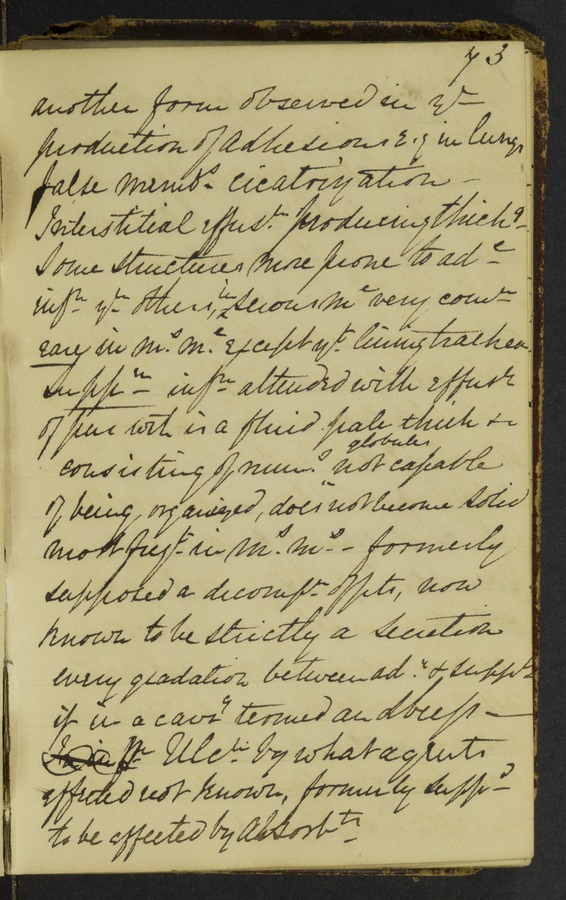 73
another form observed in ye
production of adhesions E.g in lungs
false membs cicatrization –
Interstitial effusn producing thickg
Some structures more prone to ade
infn yn others, in Serous me very comn
rare in Ms. Me. Except yt lining trachea
Suppn infn attended with effusn
of pus wch is a fluid pale thick &
consisting of nums globules not capable
of being organized, does not become Solid
most freqt in Ms. ms – formerly
supposed a decompn of pts, now
known to be strictly a Secretion
every gradation between ade & suppn
if in a cavy termed an abcess –
Ulcn by what agents
effected not known, formerly suppd
to be affected by Absorbts